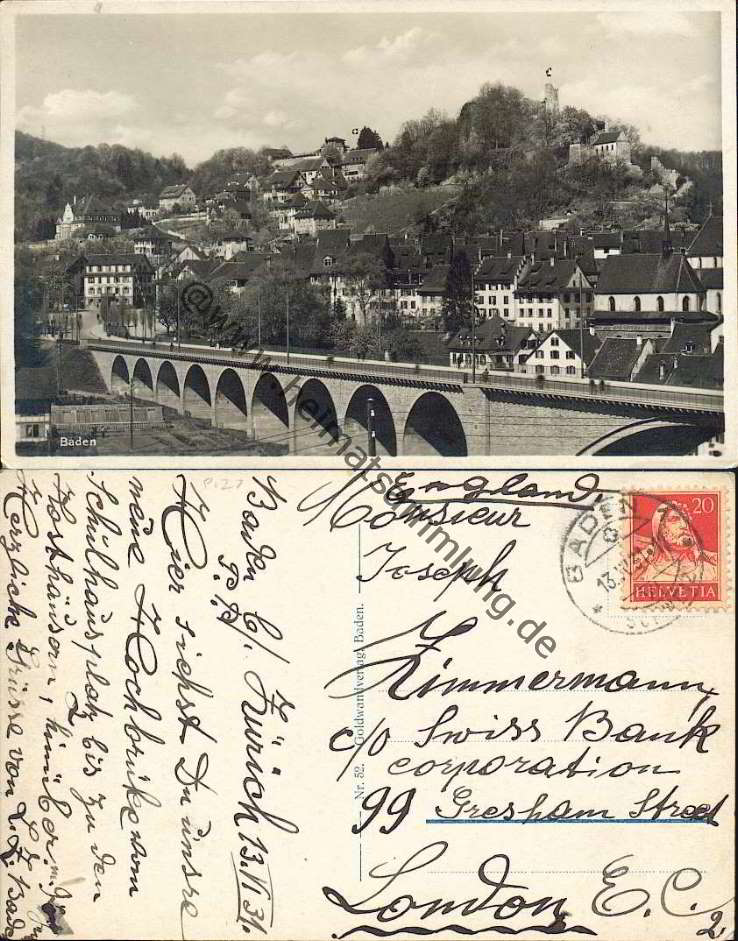 Baden
@www.heimatsammlung.de
England.
Monsieur
Joseph
Zimmermann,
c/o Swiss Bank
corporation
99 Gresham Street
London, E.C.2
BADEN
13.VI.31
20
HELVETIA
Nr. 52. Goldwandverlag, Baden.
Baden b/. Zürich 13.VI 31.
P.P.
Hier siehst Du unsre
neue Hochbrüke vom
Schulhausplatz bis zu den
Posthäusern, hinüber.
Herzliche Grüsse von L.Z. Baden